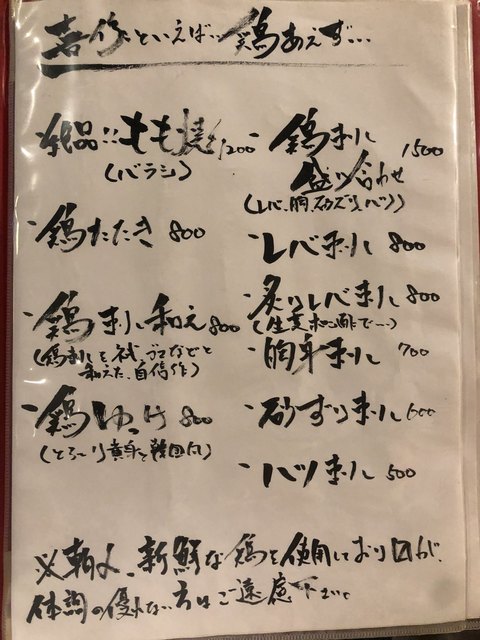 喜作といえば…鶏あえず…
・絶品!!もも焼 1200
(バラシ)
・鶏たたき 800
・鶏刺し和え 800
(鶏刺しを ゴマなどと
和えた、自信作)
・鶏ゆっけ 800
(とろ〜り黄身と韓国風)
・鶏刺し
盛り合わせ 1500
(レバ、胸、砂ズリ、ハツ)
・レバ刺し 800
・炙りレバ刺し 800
(生姜ポン酢で…)
・胸身刺し 700
・砂ずり刺し 600
・ハツ刺し 500
※朝〆、新鮮な鶏を使用しておりますが、
体調の優れない方はご遠慮下さい